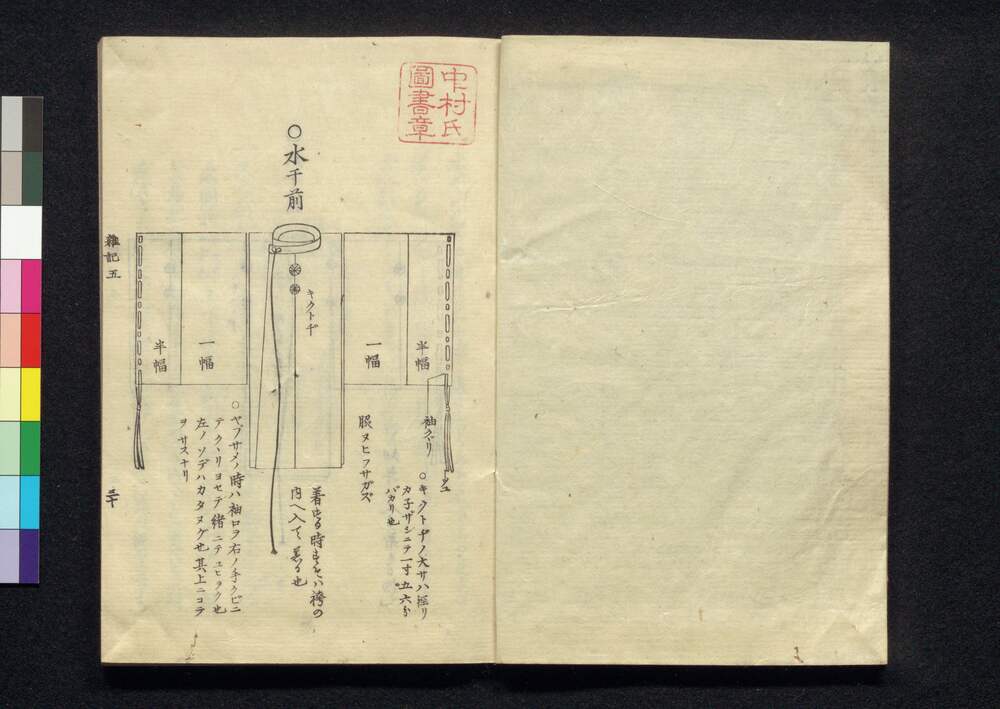 中村氏
圖書章
○水干前
キクトヂ
半幅
一幅
一幅
半幅
袖クヽリ
○キクトヂノ大サハ掘リ
カ子ザシニテ一寸五六分
バカリ也
腋ヌヒフサガズ
着する時すそハ袴の
内へ入て着る也
○ヤブサメノ時ハ袖口ヲ右ノ手クビニ
テクヽリヨセテ緒ニテユヒヲク也
左ノソデハカタヌグ也其上ニコテ
ヲサスナリ
雑記五
三十